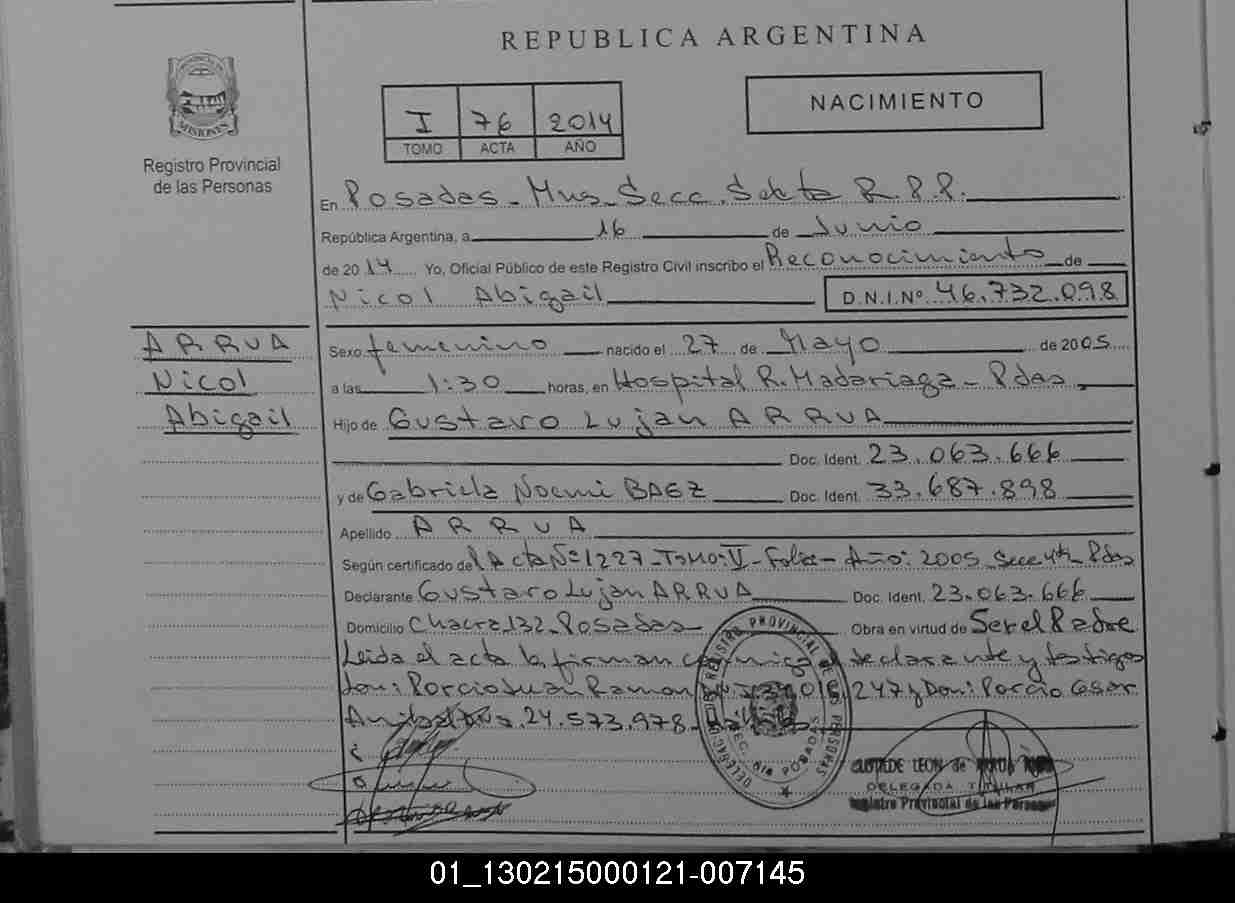 REPUBLICA ARGENTINA
PROVINCIA DE
MISIONES
Registro Provincial
de las Personas
NACIMIENTO
I 76 2014
TOMO ACTA AÑO
En Posadas - Mns - Secc. Sexta R.P.P.
República Argentina, a 16 de Junio
de 2014 Yo, Oficial Público de este Registro Civil inscribo el Reconocimiento de
Nicol Abigail D.N.I.Nº 46.732.098
ARRUA
Nicol
Abigail
Sexo femenino nacido el 27 de Mayo de 2005
a las 1:30 horas, en Hospital R. Madariaga - Pdas
Hijo de Gustavo Lujan ARRUA
Doc. Ident. 23.063.666
y de Gabriela Noemi BAEZ Doc. Ident. 33.687.898
Apellido ARRUA
Según certificado del Acta Nº 1227 - Tomo: V - Folio - Año: 2005 Secc 4ta Pdas
Declarante Gustavo Lujan ARRUA Doc. Ident. 23.063.666
Domicilio Chacra 132 - Posadas Obra en virtud de Ser el Padre
Leida el acta la firman conmigo el declarante y testigos
don: Porcio Juan Ramon 247 y Don: Porcio Cesar
24.573.978
DELEGACION DE REGISTRO PROVINCIAL DE LAS PERSONAS
SEC. 6ta POSADAS
CLOTILDE LEON de
DELEGADA TITULAR
Registro Provincial de las Personas
01_130215000121-007145